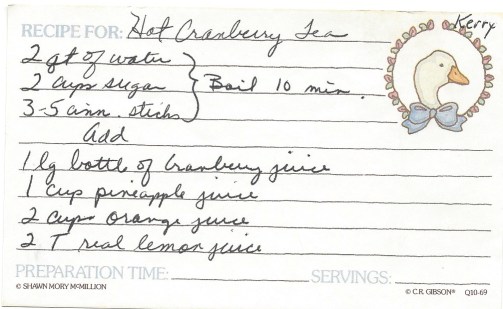 Kerry
RECIPE FOR: Hot Cranberry Tea
2 qt of water
2 cups sugar } Boil 10 min.
3-5 cinn. sticks
Add
1 lg bottle of Cranberry juice
1 cup pineapple juice
2 cups orange juice
2 T real lemon juice
PREPARATION TIME: SERVINGS:
© SHAWN MORY McMILLION © C.R. GIBSON® Q10-69